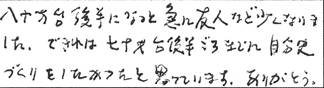 八十才台後半になると急に友人など少くなりま
した。できれば七十才台後半ごろまでに自分史
づくりをしたかったと思っています。ありがとう。